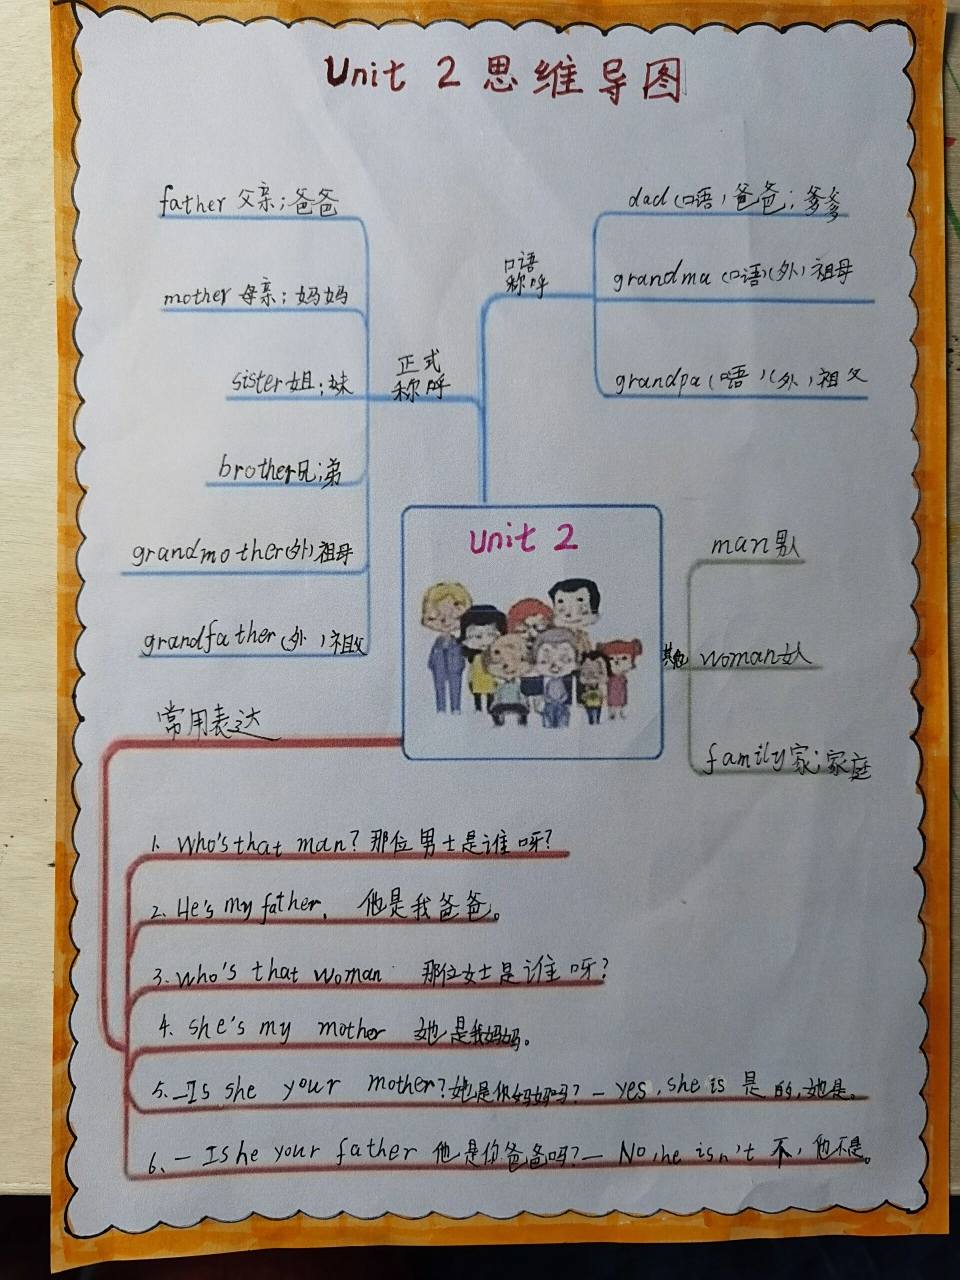 Unit 2 思维导图
father 父亲；爸爸
mother 母亲；妈妈
sister 姐；妹
brother 兄；弟
grandmother (外) 祖母
grandfather (外) 祖父
正式
称呼
口语
称呼
dad (口语) 爸爸；爹爹
grandma (口语) (外) 祖母
grandpa (口语) (外) 祖父
Unit 2
其他
man 男人
woman 女人
family 家；家庭
常用表达
1. Who's that man? 那位男士是谁呀?
2. He's my father. 他是我爸爸。
3. Who's that woman 那位女士是谁呀?
4. She's my mother 她是我妈妈。
5. —Is she your mother? 她是你妈妈吗? — yes, she is 是的,她是。
6. — Is he your father 他是你爸爸吗? — No, he isn't 不, 他不是。